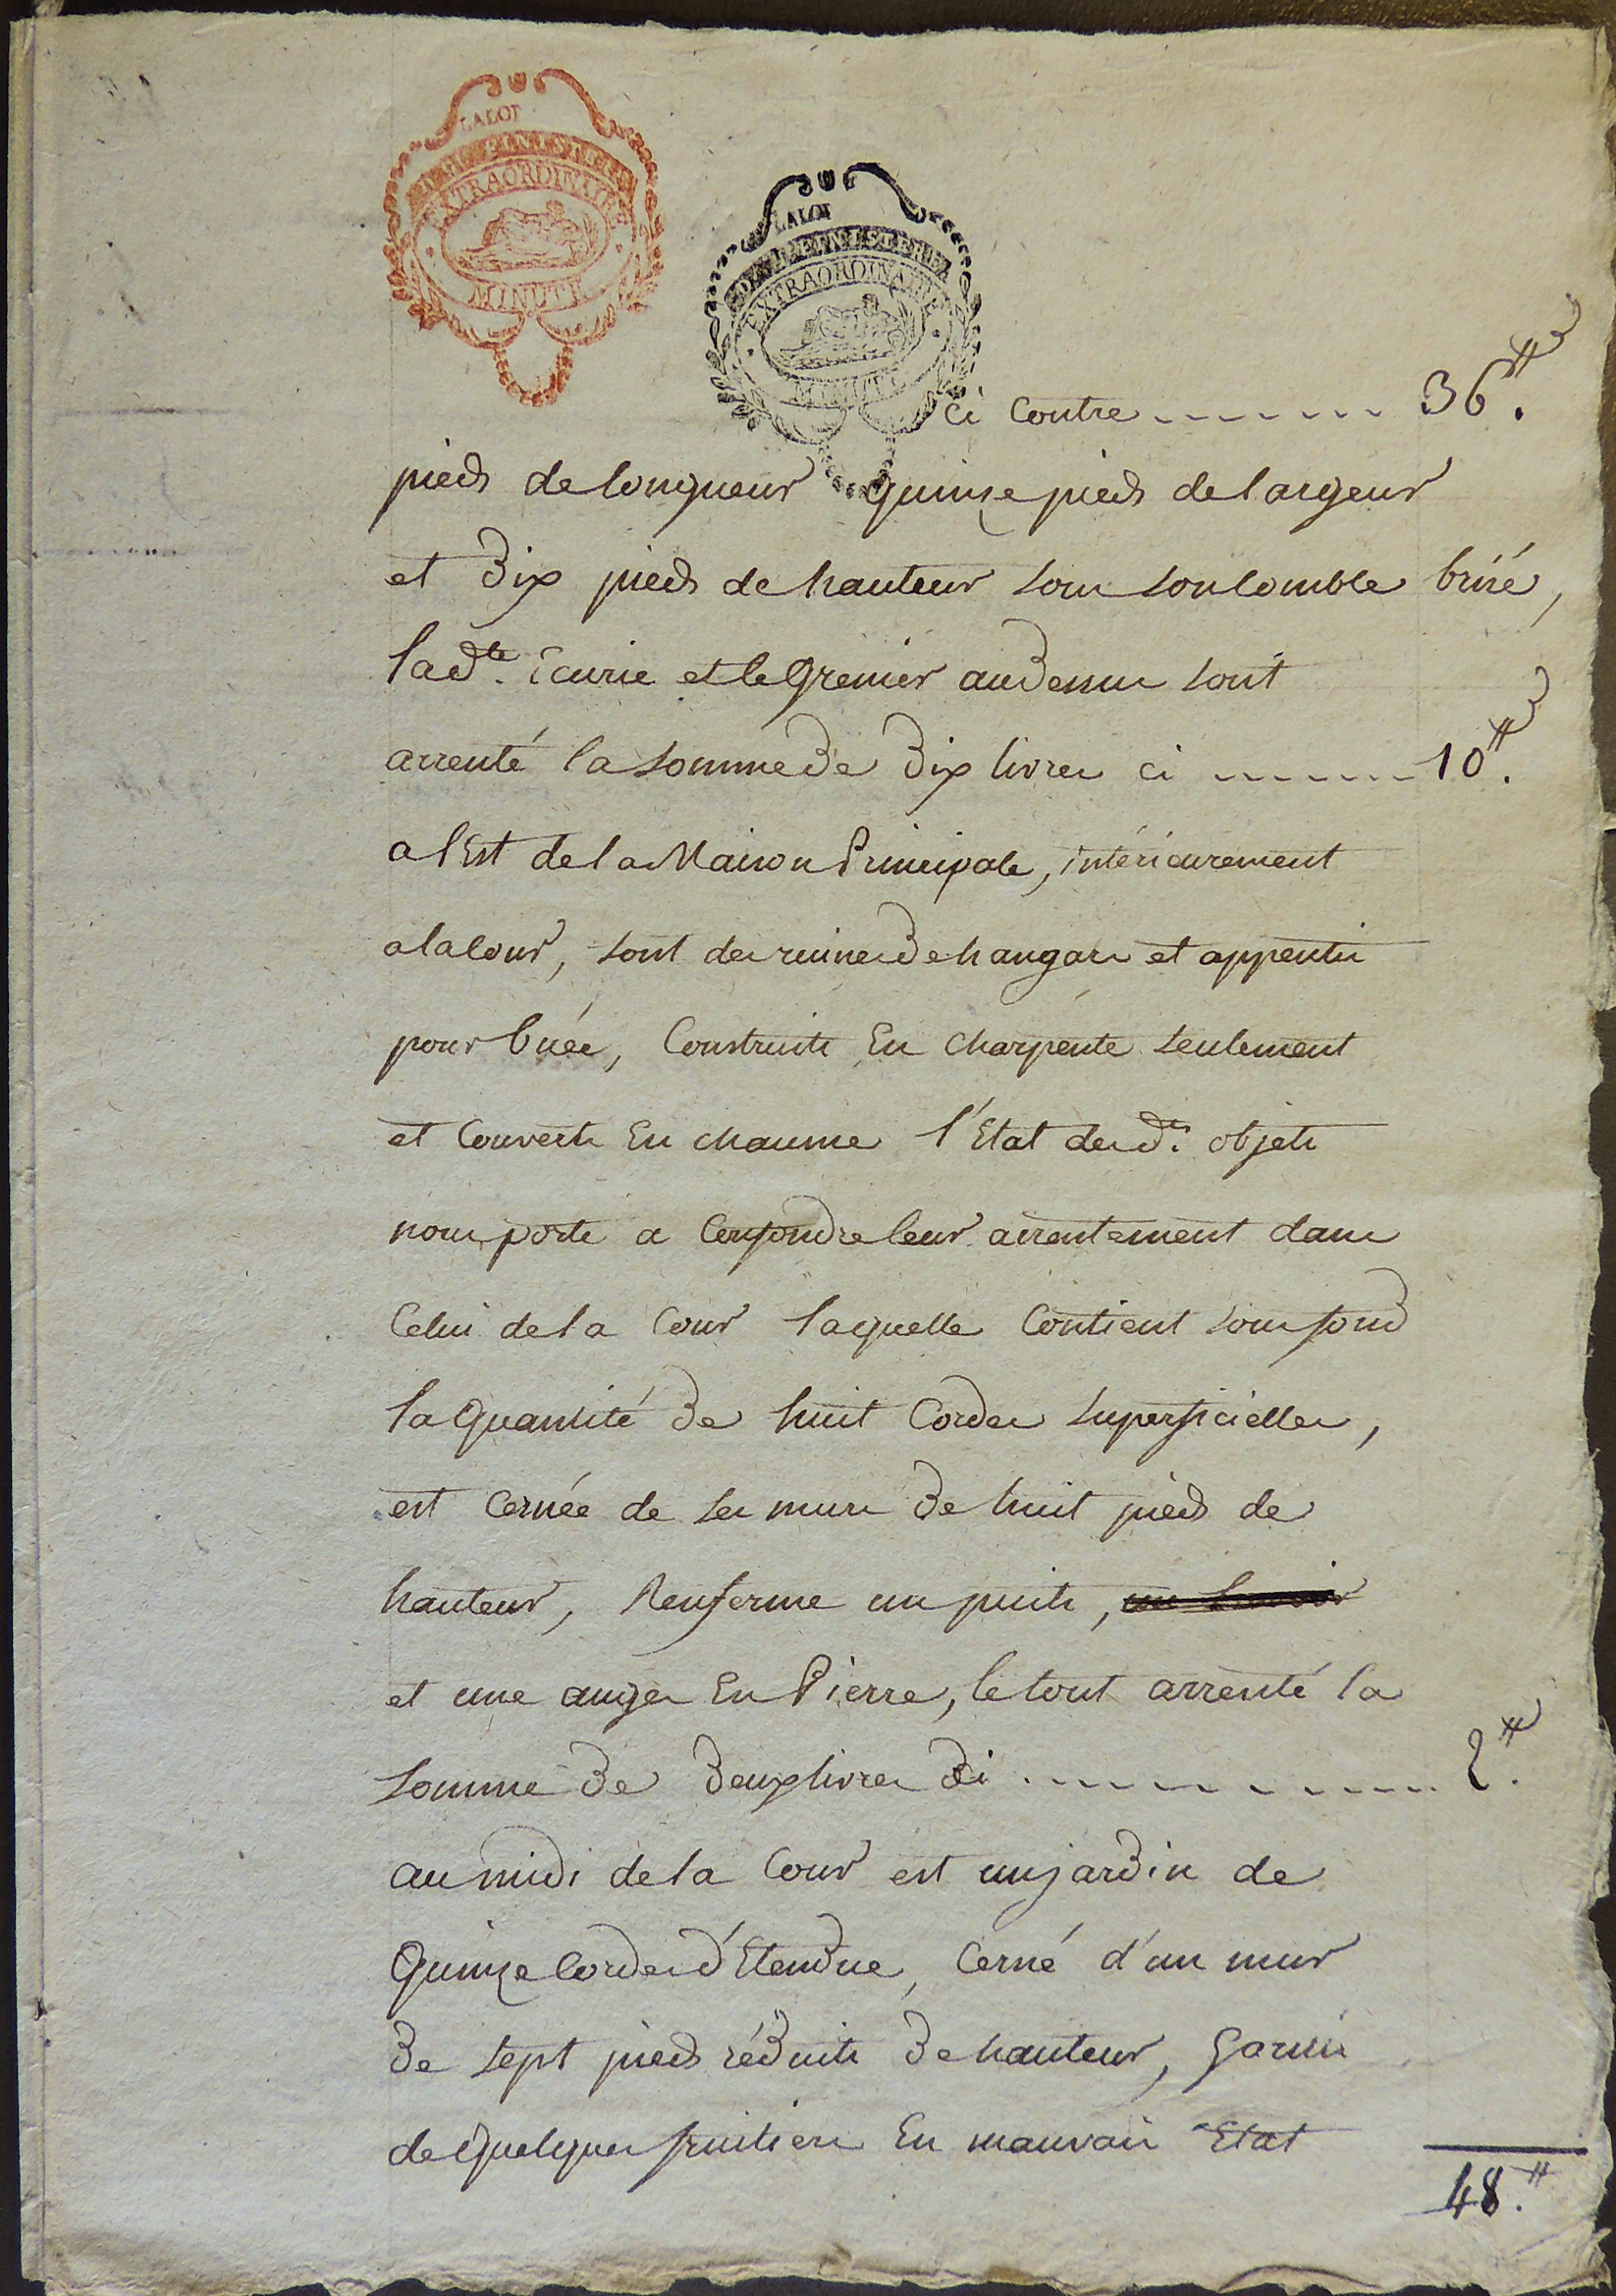 LALOI
EXTRAORDINAIRE
MINUTE
LALOI
EXTRAORDINAIRE
MINUTE
ci contre ------- 36.₶
pieds de longueur quinze pieds de largeur
et dix pieds de hauteur sous son comble brisé,
lad.te Ecurie et le Grenier au dessus sont
arrenté la somme de dix livres ci ------- 10.₶
a l'Est de la Maison Principale, intérieurement
a la cour, sont des ruines de hangars et appentis
pour buée, Construits En charpente seulement
et Couverts En chaume l'Etat desd.ts objets
nous porte a Confondre leur arrentement dans
Celui de la Cour laquelle Contient sous fond
la Quantité de huit Cordes superficielles,
est Cernée de ses murs de huit pieds de
hauteur, Renferme un puits, un lavoir
et une auges En Pierre, le tout arrenté la
somme de deux livres ci ------- 2.₶
au midi de la Cour est un jardin de
Quinze Cordes d'Etendue, Cerné d'un mur
de sept pieds réduits de hauteur, Garnis
de Quelques fruitiers En mauvais Etat
48.₶